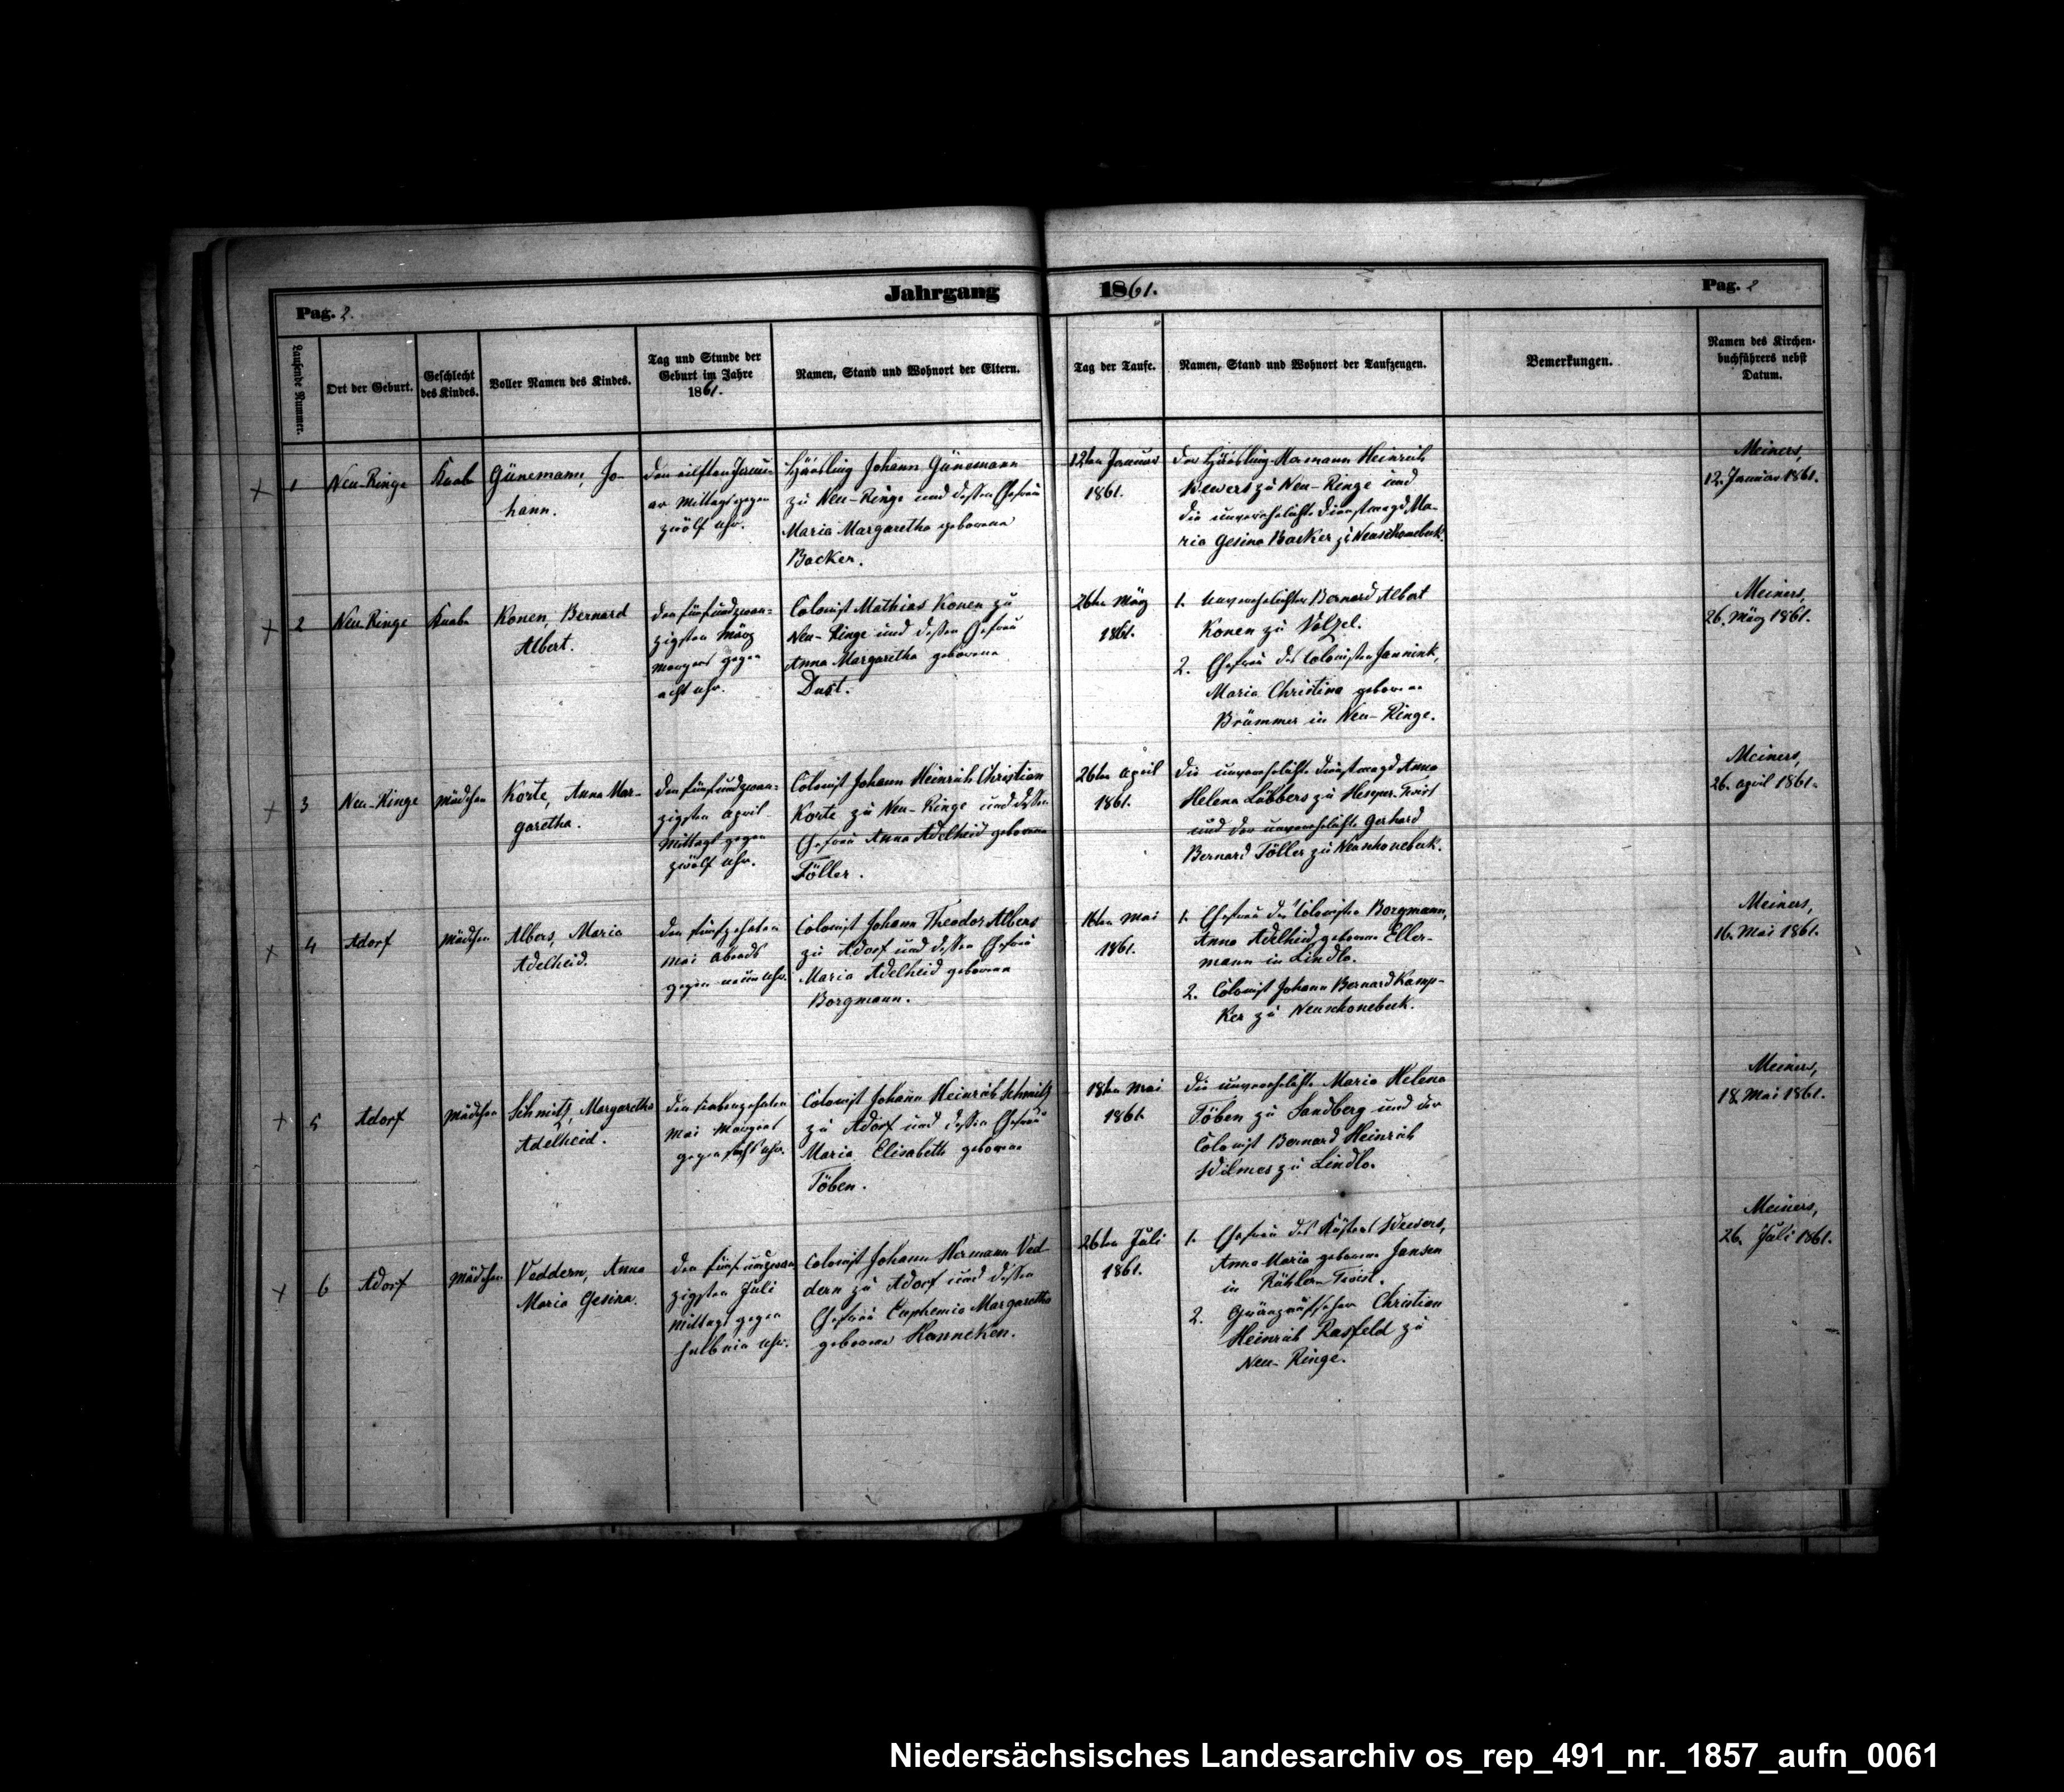 Jahrgang 1861.
Pag. 2.
Pag. 2
Laufende Nummer.
Ort der Geburt.
Geschlecht
des Kindes.
Voller Namen des Kindes.
Tag und Stunde der
Geburt im Jahre
1861.
Namen, Stand und Wohnort der Eltern.
Tag der Taufe.
Namen, Stand und Wohnort der Taufzeugen.
Bemerkungen.
Namen des Kirchen-
buchführers nebst
Datum.
1
Neu-Ringe
Knabe
Günemann, Jo-
hann.
den eilften Janu-
ar Mittags gegen
zwölf Uhr.
Häusling Johann Günemann
zu Neu-Ringe und dessen Ehefrau
Maria Margaretha geborene
Backer.
12ten Januar
1861.
der Häusling Hermann Heinrich
Wewers zu Neu-Ringe und
die unverehelichte Dienstmagd Ma-
ria Gesina Backer zu Neuschonebeck.
Meiners,
12. Januar 1861.
2
Neu-Ringe
Knabe
Konen, Bernard
Albert.
den fünfundzwan-
zigsten März
Morgens gegen
acht Uhr.
Colonist Mathias Konen zu
Neu-Ringe und dessen Ehefrau
Anna Margaretha geborene
Dust.
26ten März
1861.
1. Unverehelichter Bernard Albert
Konen zu Volzel.
2. Ehefrau des Colonisten Jannink,
Maria Christina geborene
Brümmer in Neu-Ringe.
Meiners,
26. März 1861.
3
Neu-Ringe
Mädchen
Korte, Anna Mar-
garetha.
den fünfundzwan-
zigsten April
Mittags gegen
zwölf Uhr.
Colonist Johann Heinrich Christian
Korte zu Neu-Ringe und dessen
Ehefrau Anna Adelheid geborene
Töller.
26ten April
1861.
die unverehelichte Dienstmagd Anna
Helena Lübbers zu Hesper-Twist
und der unverehelichte Gerhard
Bernard Töller zu Neuschonebeck.
Meiners,
26. April 1861.
4
Adorf
Mädchen
Albers, Maria
Adelheid.
den fünfzehnten
Mai Abends
gegen neun Uhr.
Colonist Johann Theodor Albers
zu Adorf und dessen Ehefrau
Maria Adelheid geborene
Borgmann.
16ten Mai
1861.
1. Ehefrau des Colonisten Borgmann,
Anna Adelheid geborene Eller-
mann in Lindlo.
2. Colonist Johann Bernard Kamp-
ker zu Neuschonebeck.
Meiners,
16. Mai 1861.
5
Adorf
Mädchen
Schmitz, Margaretha
Adelheid.
den siebenzehnten
Mai Morgens
gegen sechs Uhr.
Colonist Johann Heinrich Schmitz
zu Adorf und dessen Ehefrau
Maria Elisabeth geborene
Töben.
18ten Mai
1861.
die unverehelichte Maria Helena
Töben zu Sandberg und der
Colonist Bernard Heinrich
Wilmes zu Lindlo.
Meiners,
18. Mai 1861.
6
Adorf
Mädchen
Veddern, Anna
Maria Gesina.
den fünfundzwan
zigsten Juli
Mittags gegen
halb ein Uhr.
Colonist Johann Hermann Ved
dern zu Adorf und dessen
Ehefrau Euphemia Margaretha
geborene Hanneken.
26ten Juli
1861.
1. Ehefrau des Küsters Wewers,
Anna Maria geborene Jansen
in Rühler-Twist.
2. Gränzaufseher Christian
Heinrich Rasfeld zu
Neu-Ringe.
Meiners,
26. Juli 1861.
Niedersächsisches Landesarchiv os_rep_491_nr._1857_aufn_0061